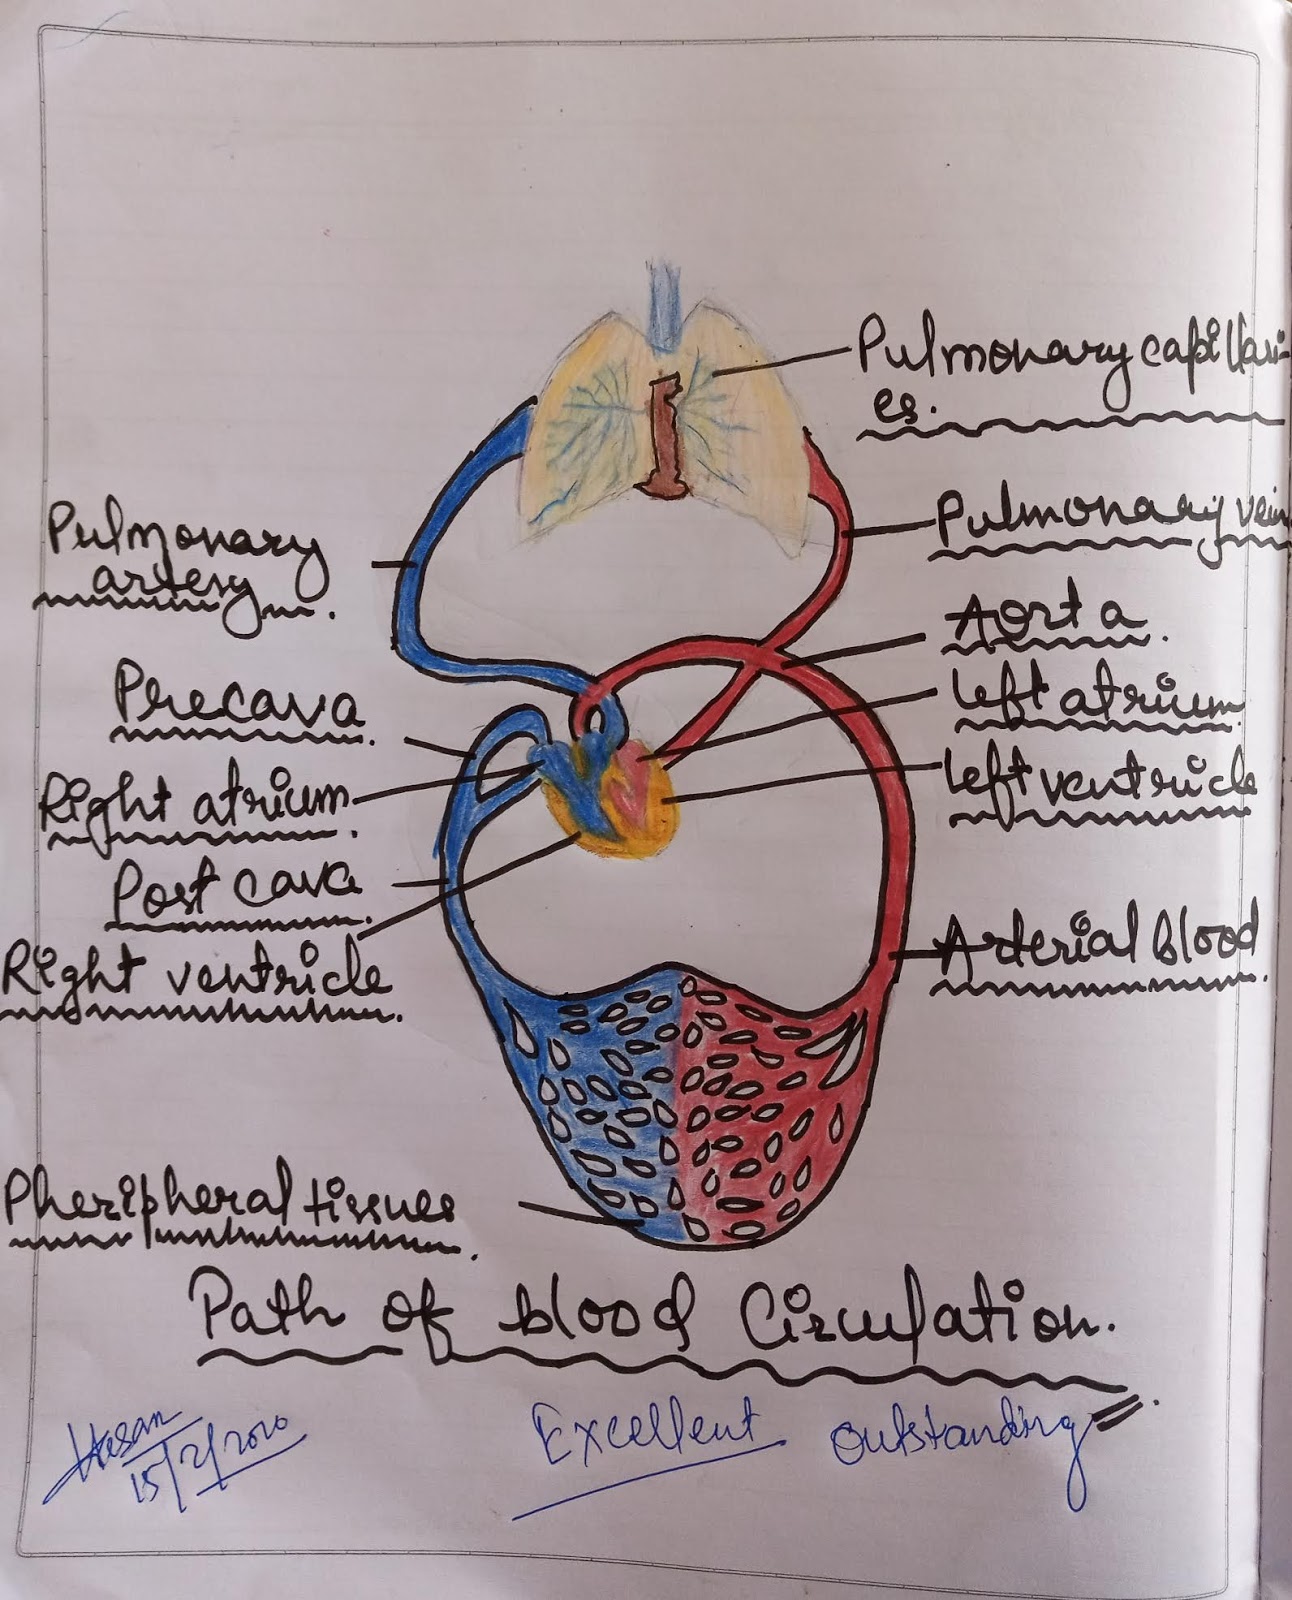 Pulmonary capillari-
es.
Pulmonary vein
Pulmonary
artery.
Aorta.
Left atrium.
Precava.
Left ventricle
Right atrium.
Post cava.
Arterial blood.
Right ventricle.
Pheripheral tissues.
Path of blood Circulation.
Excellent outstanding
Hasan
15/2/2020